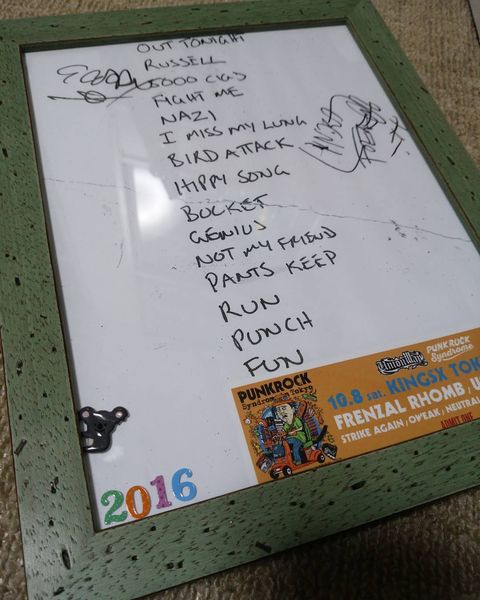 OUT TONIGHT
RUSSELL
5000 CIGS
FIGHT ME
NAZI
I MISS MY LUNG
BIRD ATTACK
HIPPY SONG
BUCKET
GENIUS
NOT MY FRIEND
PANTS KEEP
RUN
PUNCH
FUN
PUNKROCK
Syndrome in Tokyo
UnionWay
PUNKROCK
Syndrome
10.8 sat. KINGSX TOK
FRENZAL RHOMB, U
STRIKE AGAIN / OWEAK / NEUTRAL
ADMIT ONE
2016